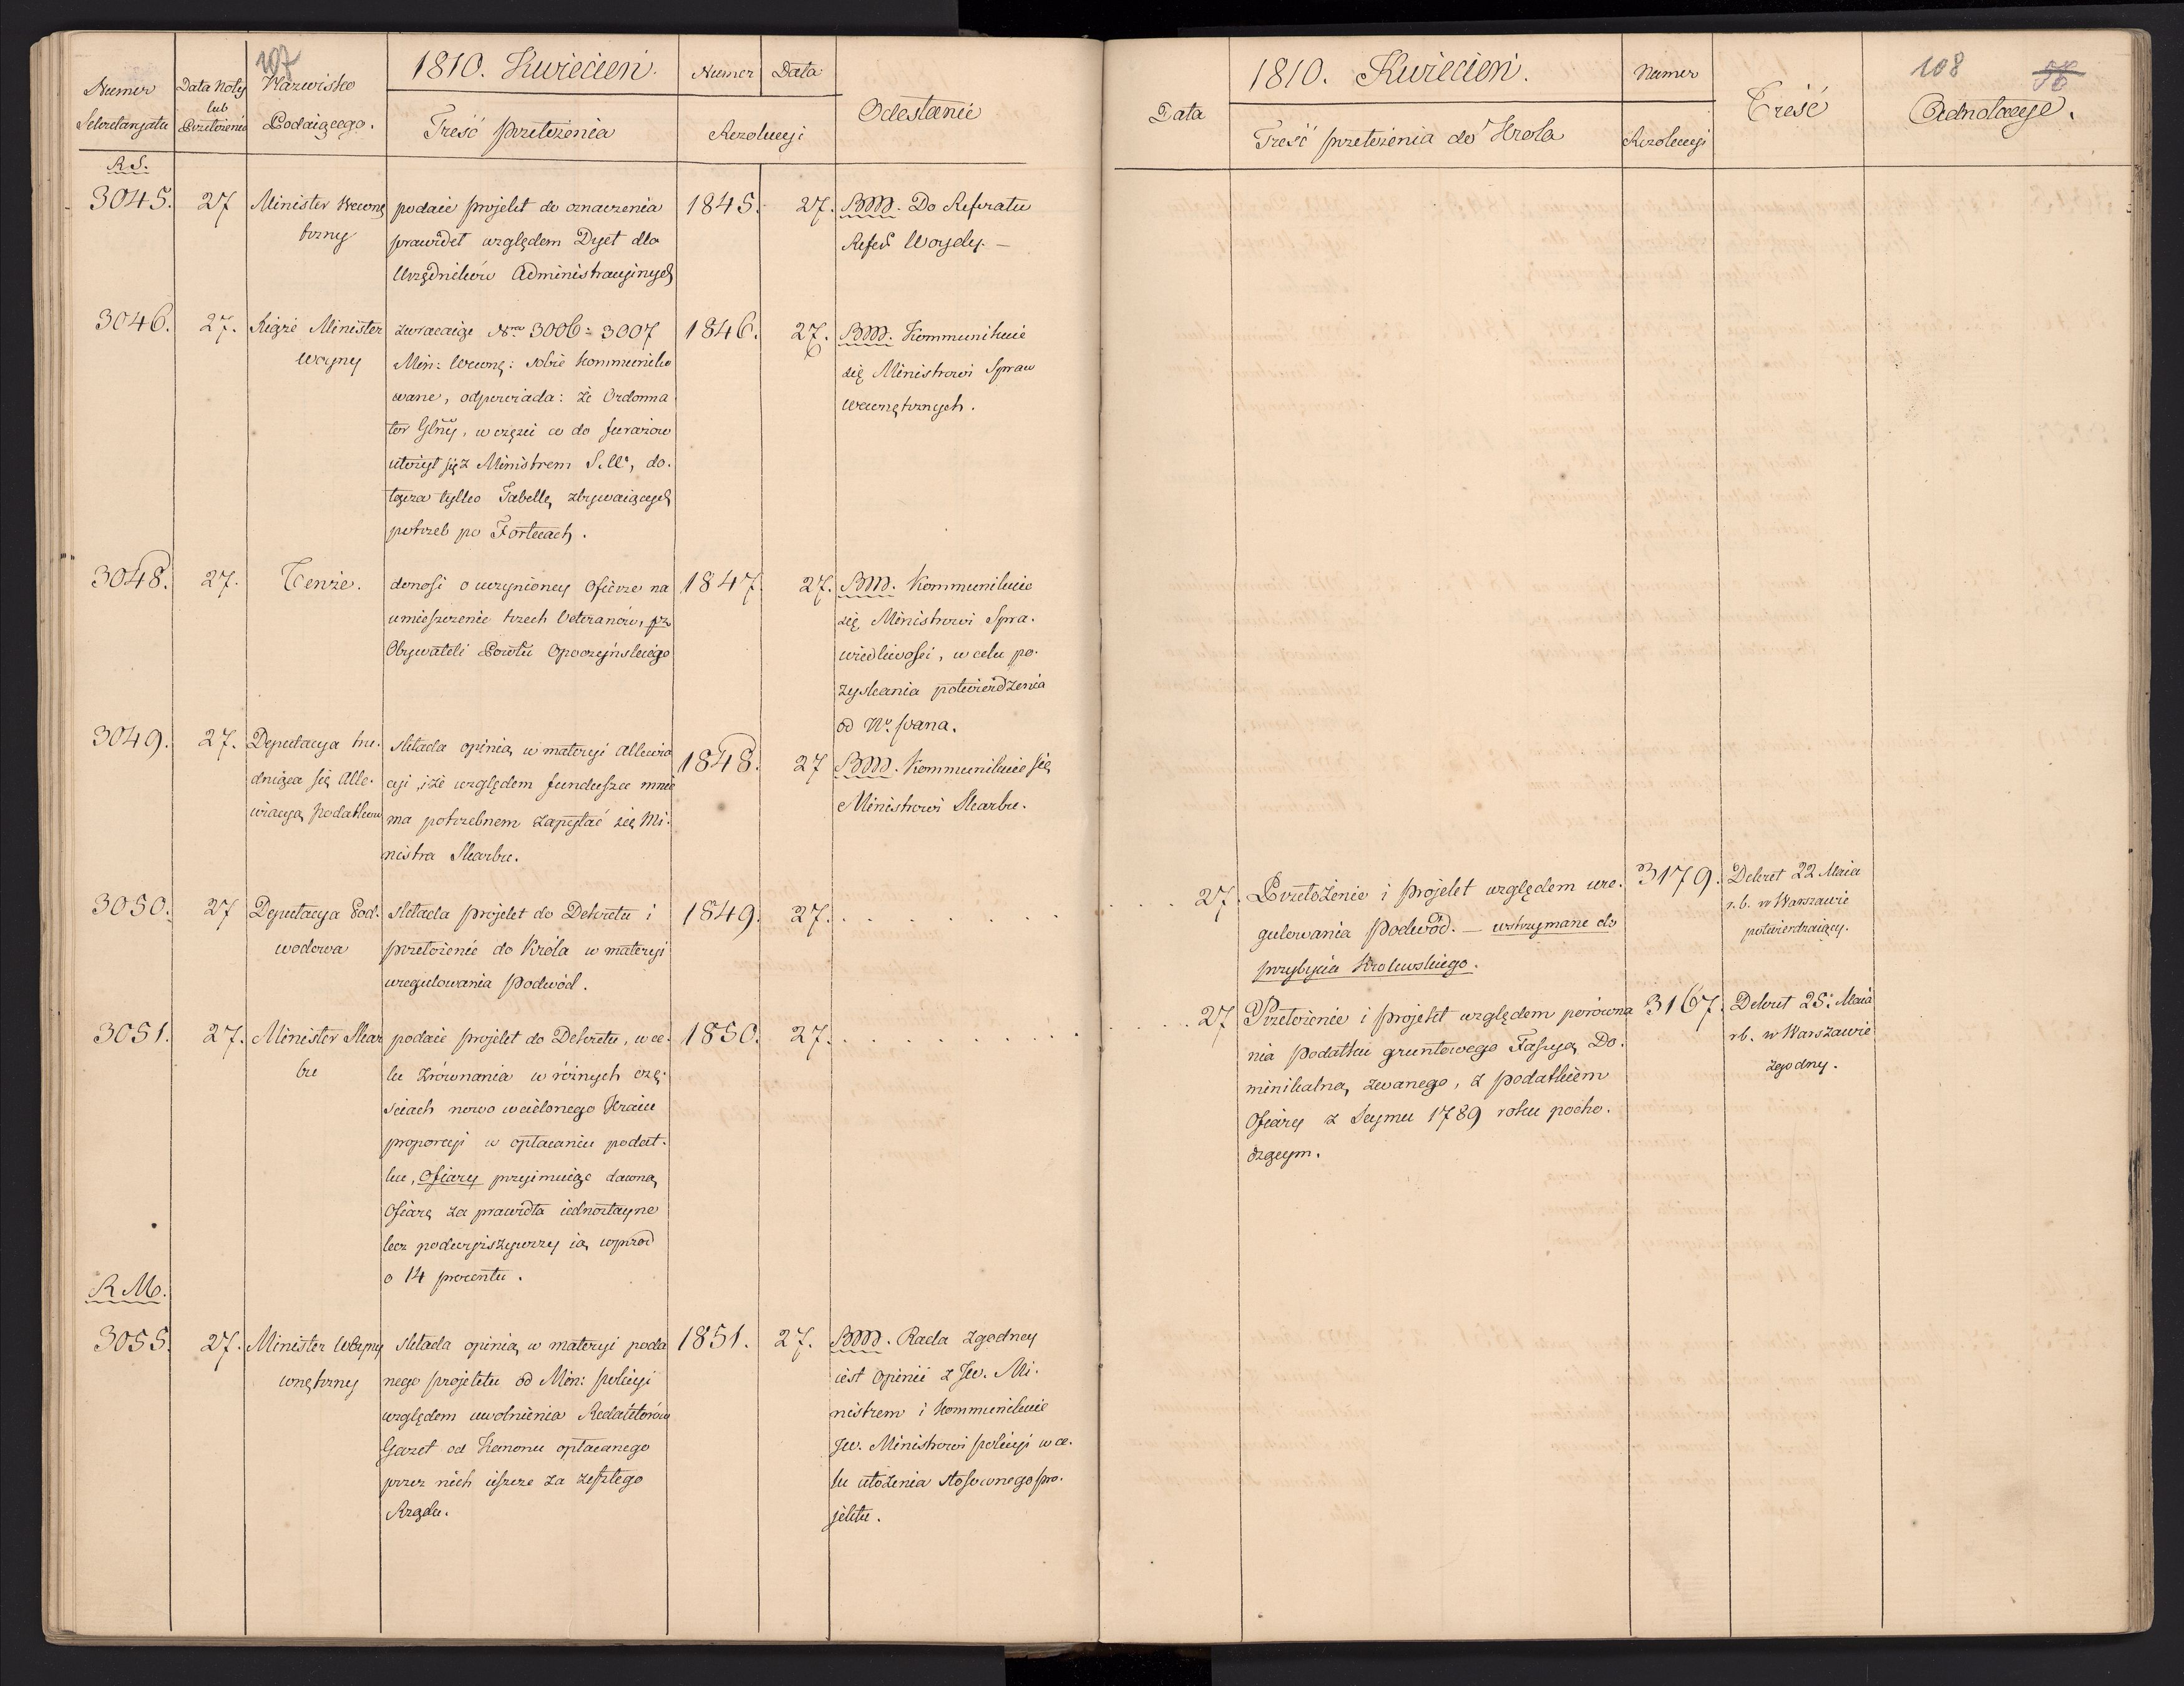 107
Numer
Sekretaryatu
Data Noty
lub
Przełożenia
Nazwisko
Podaiącego.
1810. Kwiecień.
Treść przełożenia
Numer
Data
Rezolucyi
Odesłanie
R.S.
3045.
27
Minister Wewnę
trzny
podaie projekt do oznaczenia
prawideł względem Dyet dla
Urzędników Administracyinych
1845.
27.
BM. Do Referatu
Refer Woydy. —
3046.
27.
Xiąże Minister
Woyny
zwracaiąc Nra 3006 = 3007
Min: Wewnę: sobie kommuniko
wane, odpowiada: że Ordonna
tor Glny, w części co do furażów
ułożył się z Ministrem S.W., do.
łącza tylko Tabellę zbywaiących
potrzeb po Fortecach.
1846.
27.
BM. Kommunikuie
się Ministrowi Spraw
Wewnętrznych.
3048.
27.
Tenże.
donosi o uczynioney Ofierze na
umieszczenie trzech Veteranów, prz
Obywateli Powtu Opoczyńskiego
1847.
27.
BM. Kommunikuie
się Ministrowi Spra.
wiedliwości, w celu po.
zyskania potwierdzenia
od N. Pana.
3049.
27.
Deputacya tru.
dniąca się Alle.
wiacyą podatków
składa opinią w materyi Allewia
cyi, iż względem funduszu mnie
ma potrzebnem zapytać się Mi.
nistra Skarbu.
1848.
27
BM. Kommunikuie się
Ministrowi Skarbu.
3050.
27
Deputacya Pod.
wodowa
składa projekt do Dekretu i
przełożenie do Króla w materyi
uregulowania Podwód.
1849.
27.
3051.
27.
Minister Skar
bu
podaie projekt do Dekretu, w ce.
lu zrównania w różnych czę.
ściach nowo wcielonego Kraiu
proporcyi w opłacaniu podat.
ku, Ofiary przyimuiąc dawną
Ofiarę za prawidła iednostayne
lecz podwyższywszy ią wprzod
o 14 procentu.
1850.
27.
R.M.
3055.
27.
wnętrzny
składa opinią w materyi poda
nego projektu od Min: policyi
względem uwolnienia Redaktorów
Gazet od Kanonu opłacanego
przez nich ieszcze za zeszłego
Rządu.
1851.
27.
BM. Rada zgodney
iest Opinii z Jw. Mi.
nistrem i kommunikuie
Jw. Ministrowi policyi w ce.
lu ułożenia stosownego pro.
jektu.
108
Data
1810. Kwiecień.
Treść przełożenia do Krola
Numer
Rezolucyi
Treść
Adnotacye.
27.
Przełożenie i projekt względem ure.
gulowania Podwód. — wstrzymane do
przybycia Krolewskiego.
3179.
Dekret 22 Maia
r. b. w Warszawie
potwierdzaiący.
27
Przełożenie i projekt względem porówna
nia podatku gruntowego Fassyą Do.
minikalną zwanego, z podatkiem
Ofiary z Seymu 1789 roku pocho.
dzącym.
3167.
Dekret 25. Maia
rb. w Warszawie
zgodny.